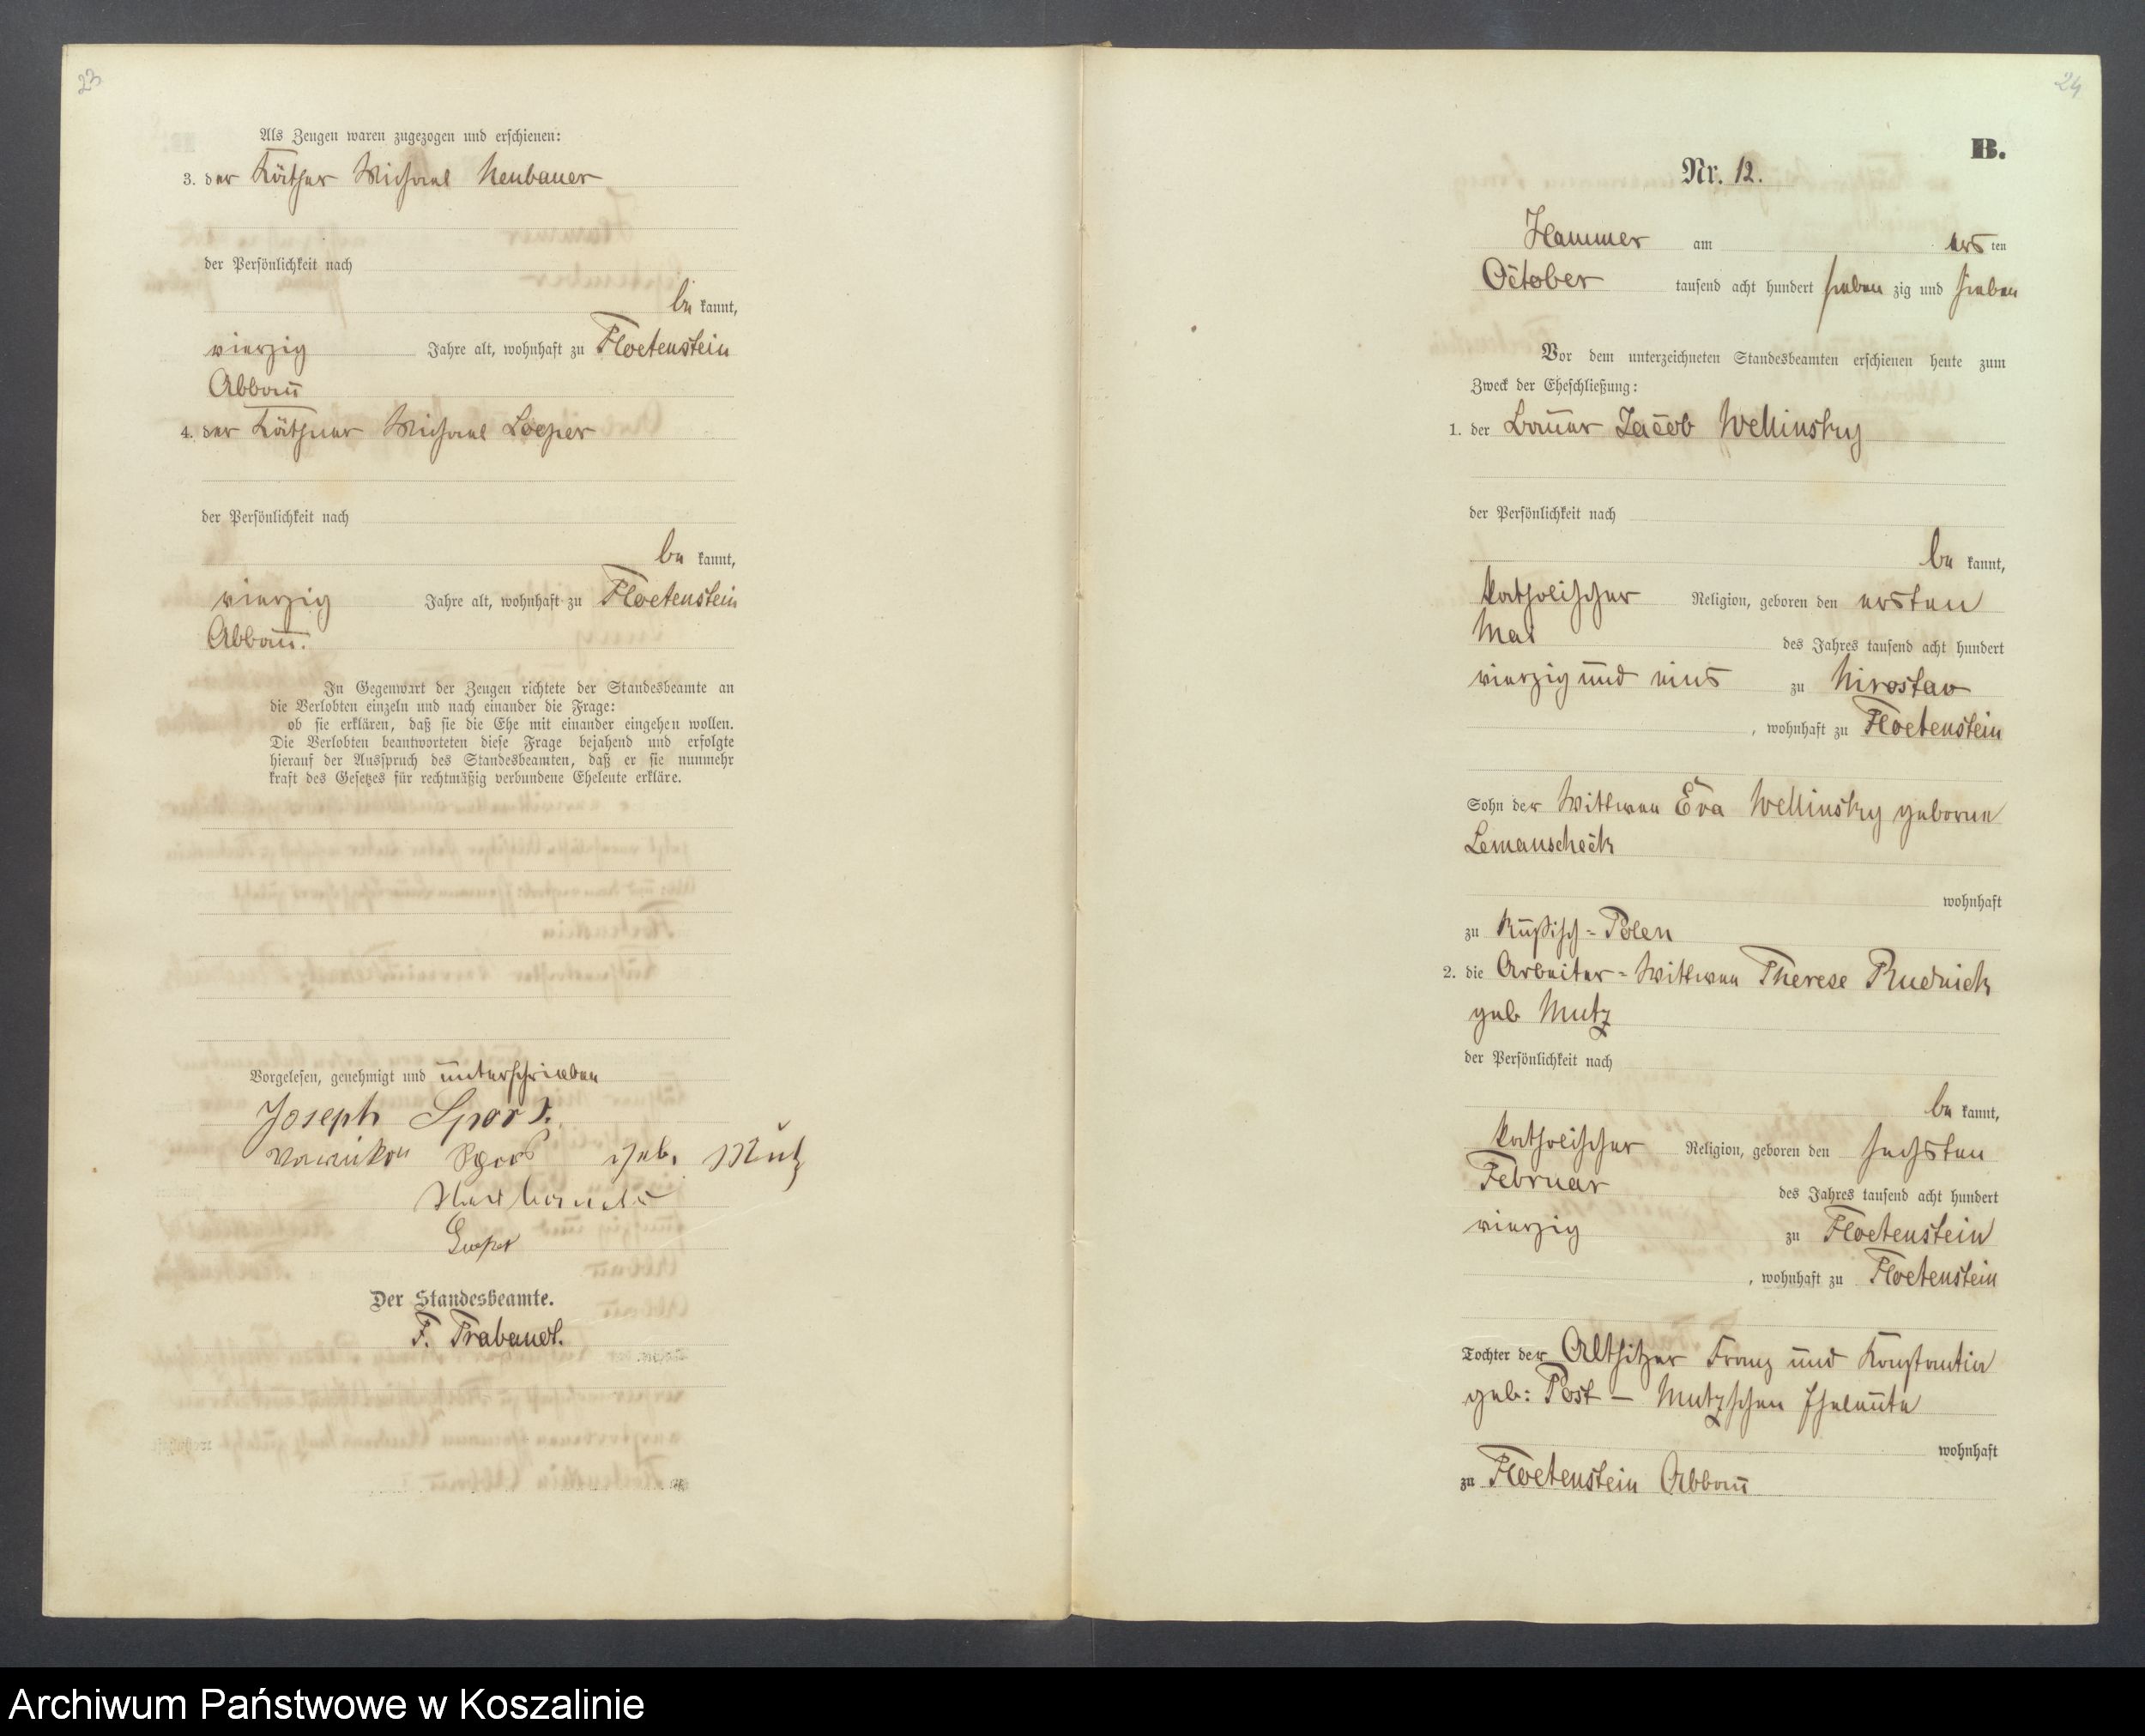 23
Als Zeugen waren zugezogen und erschienen:
3. der Käthner Michael Neubauer
der Persönlichkeit nach
be kannt,
vierzig Jahre alt, wohnhaft zu Floetenstein
Abbau
4. der Käthner Michael Loeper
der Persönlichkeit nach
be kannt,
vierzig Jahre alt, wohnhaft zu Floetenstein
Abbau.
In Gegenwart der Zeugen richtete der Standesbeamte an
die Verlobten einzeln und nach einander die Frage:
ob sie erklären, daß sie die Ehe mit einander eingehen wollen.
Die Verlobten beantworteten diese Frage bejahend und erfolgte
hierauf der Ausspruch des Standesbeamten, daß er sie nunmehr
kraft des Gesetzes für rechtmäßig verbundene Eheleute erkläre.
Vorgelesen, genehmigt und unterschrieben
Joseph Spors.
Spors geb. Mutz
Der Standesbeamte.
F. Trabandt.
24
B.
Nr. 12.
Hammer am ers ten
October tausend acht hundert sieben zig und sieben
Vor dem unterzeichneten Standesbeamten erschienen heute zum
Zweck der Eheschließung:
1. der Bauer Jacob Wellinsky
der Persönlichkeit nach
be kannt,
katholischer Religion, geboren den ersten
Mai des Jahres tausend acht hundert
vierzig und eins zu Nirostaw
, wohnhaft zu Floetenstein
Sohn der Wittwe Eva Wellinsky geborne
Lemanscheck
wohnhaft
zu Rußisch-Polen
2. die Arbeiter-Wittwe Therese Rudnick
geb Mutz
der Persönlichkeit nach
be kannt,
katholischer Religion, geboren den sechsten
Februar des Jahres tausend acht hundert
vierzig zu Floetenstein
, wohnhaft zu Floetenstein
Tochter der Altsitzer Franz und Konstantia
geb: Post - Mutzschen Eheleute
wohnhaft
zu Floetenstein Abbau
Archiwum Państwowe w Koszalinie